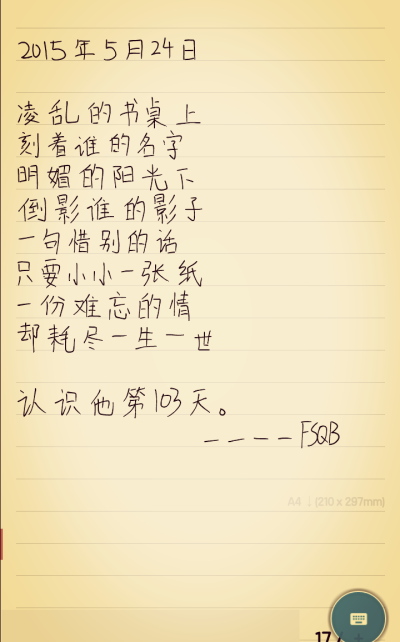 2015年5月24日
凌乱的书桌上
刻着谁的名字
明媚的阳光下
倒影谁的影子
一句惜别的话
只要小小一张纸
一份难忘的情
却耗尽一生一世
认识他第103天。
————FSQB
A4 ↓ (210 x 297mm)